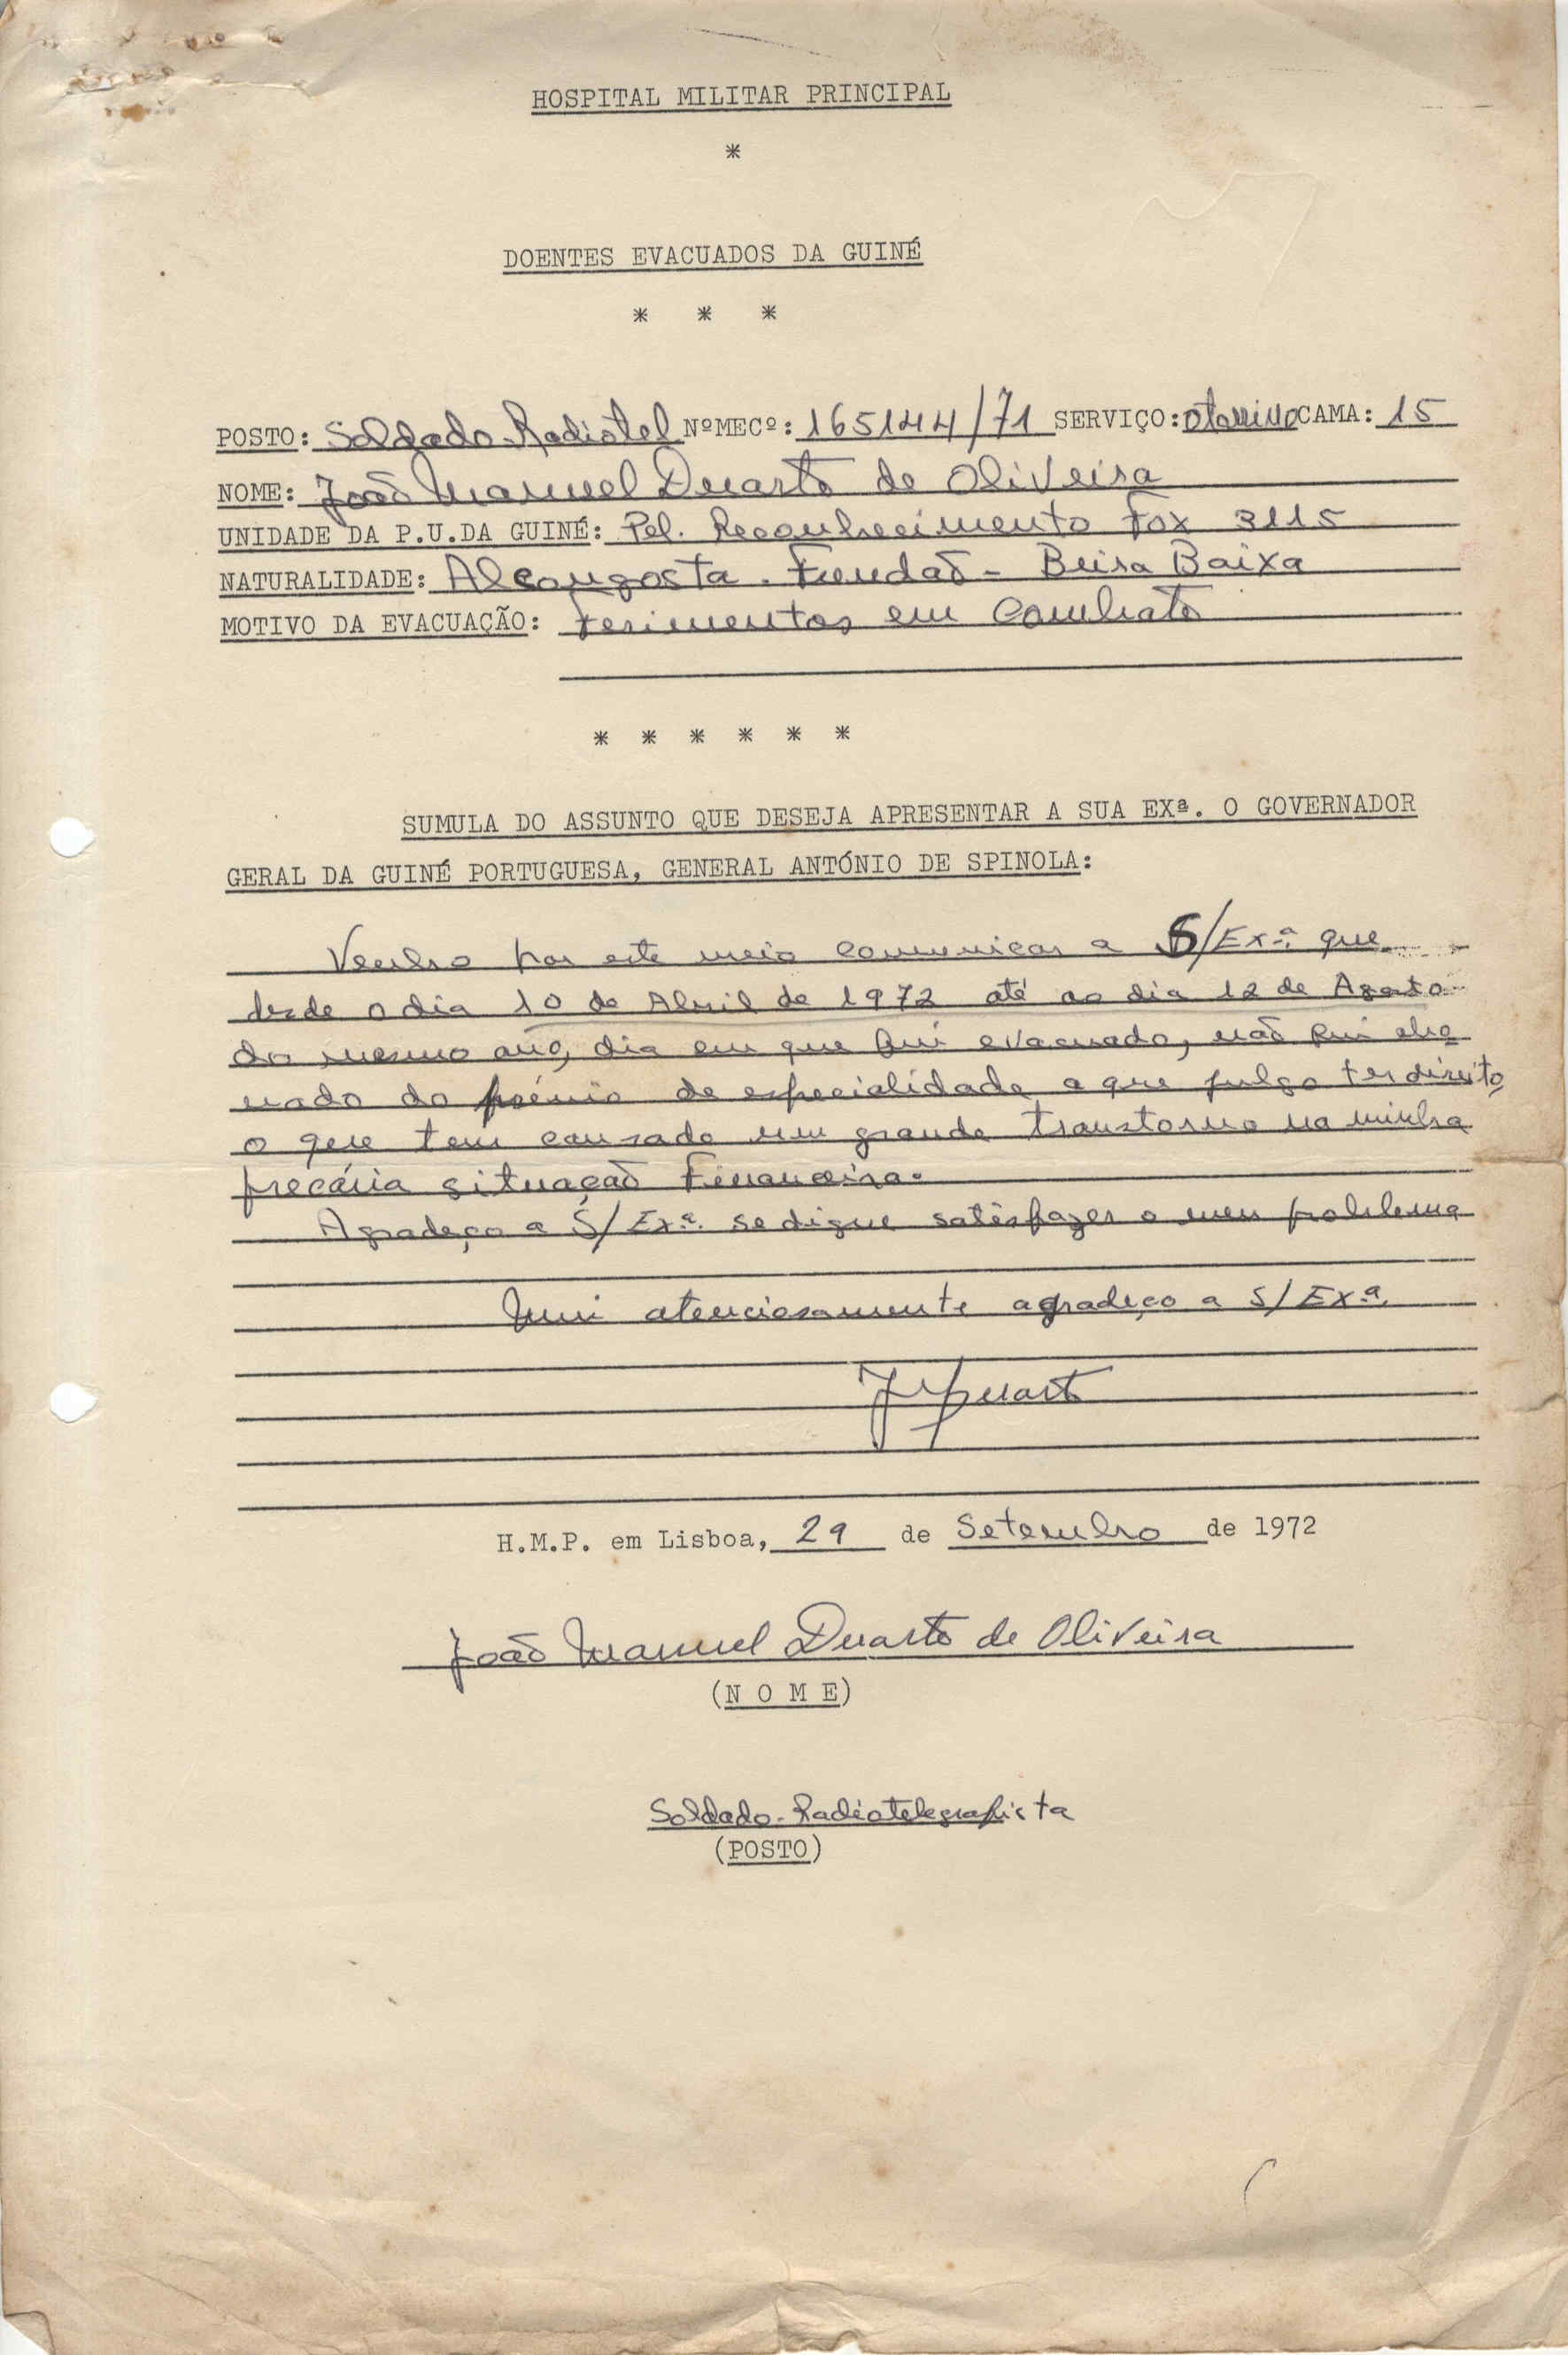 HOSPITAL MILITAR PRINCIPAL
*
DOENTES EVACUADOS DA GUINÉ
* * *
POSTO: Soldado Radiotel NºMECº: 165144/71 SERVIÇO: Otorrino CAMA: 15
NOME: João Manuel Duarte de Oliveira
UNIDADE DA P.U.DA GUINÉ: Pel. Reconhecimento Fox 3115
NATURALIDADE: Alcongosta - Fundão - Beira Baixa
MOTIVO DA EVACUAÇÃO: Ferimentos em Combate
* * * * * *
SUMULA DO ASSUNTO QUE DESEJA APRESENTAR A SUA EXª. O GOVERNADOR
GERAL DA GUINÉ PORTUGUESA, GENERAL ANTÓNIO DE SPINOLA:
Venho por este meio comunicar a S/Exª. que
desde o dia 10 de Abril de 1972 até ao dia 12 de Agosto
do mesmo ano, dia em que fui evacuado, não fui abo
nado do prémio de especialidade a que julgo ter direito,
o que tem causado um grande transtorno na minha
precária situação Financeira.
Agradeço a S/Exª. se digne satisfazer o meu problema
Mui atenciosamente agradeço a S/Exª.
JMDuarte
H.M.P. em Lisboa, 29 de Setembro de 1972
João Manuel Duarte de Oliveira
(N O M E)
Soldado-Radiotelegrafista
(POSTO)